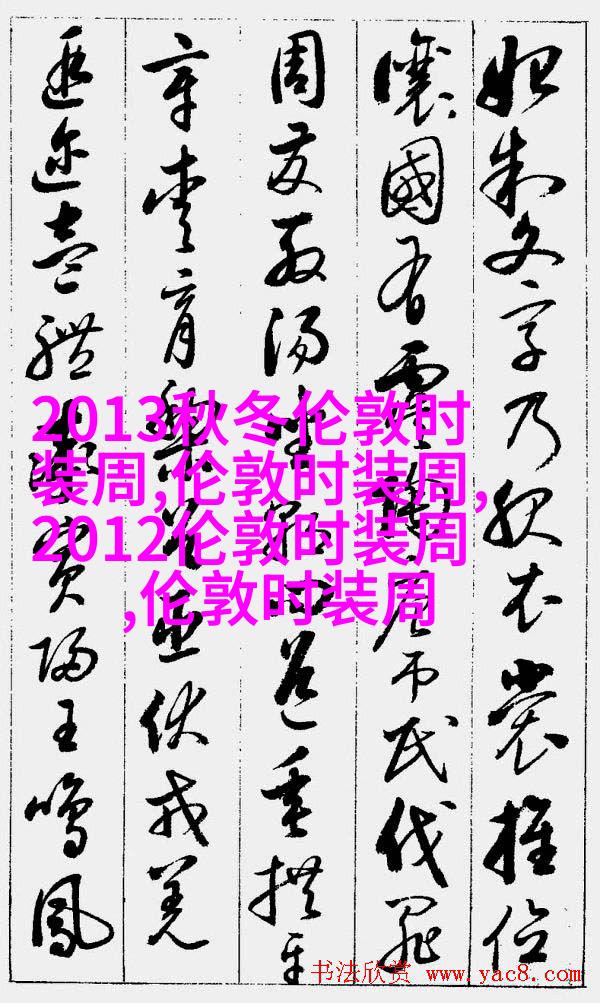 始制文字乃服衣裳推位
讓國有虞陶唐弔民伐罪
周發殷湯坐朝問道垂拱平
章愛育黎首臣伏戎羌
遐邇壹體率賓歸王鳴鳳
2013秋冬伦敦时
装周,伦敦时装周,
2012伦敦时装周
,伦敦时装周
书法欣赏 www.yac8.com